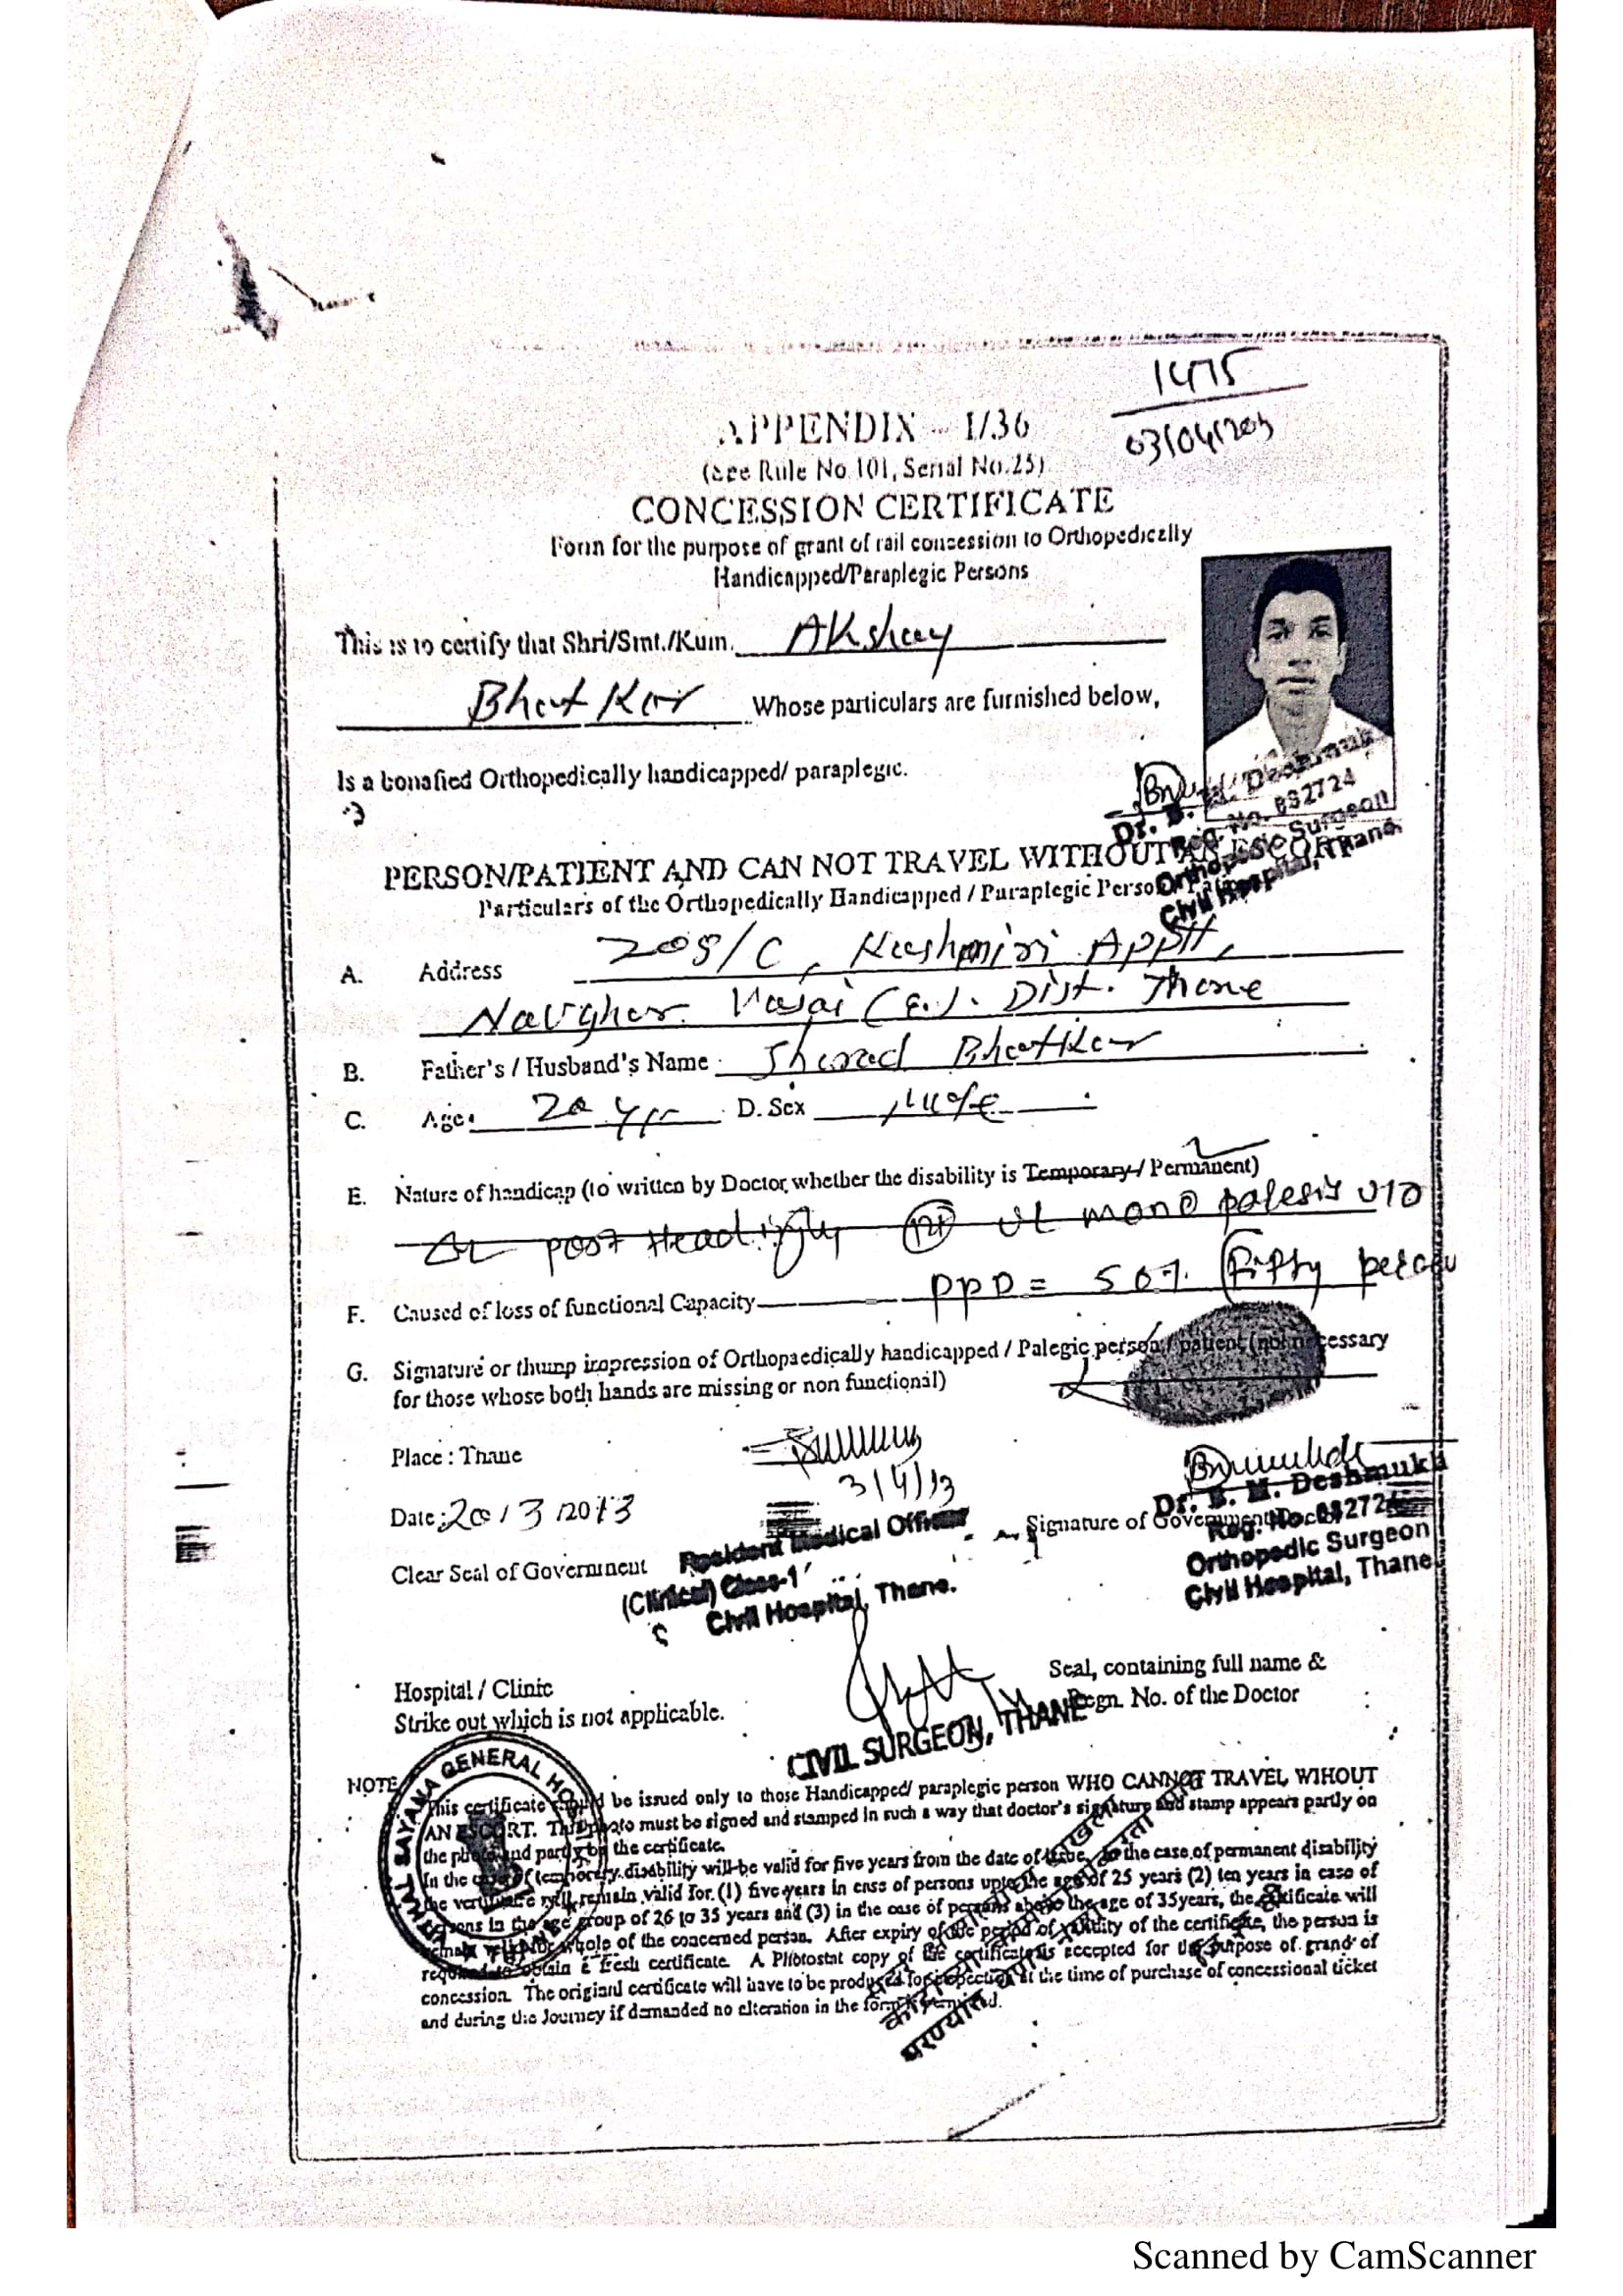 1475
APPENDIX - I/36
(See Rule No.101, Serial No.25)
CONCESSION CERTIFICATE
Form for the purpose of grant of rail concession to Orthopedically
Handicapped/Paraplegic Persons
This is to certify that Shri/Smt./Kum. Akshay
Bhatkar Whose particulars are furnished below,
Is a bonafied Orthopedically handicapped/ paraplegic.
Reg. No. 082724
Orthopedic Surgeon
Civil Hospital, Thane.
PERSON/PATIENT AND CAN NOT TRAVEL WITHOUT AN ESCORT
Particulars of the Orthopedically Handicapped / Paraplegic Person
A. Address 208/C, Kashmiri Appt,
Navghar Vasai (E). Dist. Thane
B. Father's / Husband's Name: Sharad Bhatkar
C. Age: 20 yrs D. Sex Male
E. Nature of handicap (to written by Doctor, whether the disability is Temporary / Permanent)
post Head injury UL mono palesis
F. Caused of loss of functional Capacity PPD = 50% (Fifty
G. Signature or thump impression of Orthopaedically handicapped / Palegic person / patient (not necessary
for those whose both hands are missing or non functional)
Place : Thane
3/4/13
Date: 20/3/2013
Dr. B. M. Deshmukh
Signature of Government Doctor
Reg. No. 082724
Resident Medical Officer
Clear Seal of Government
(Clinical) Class-1
Civil Hospital, Thane.
Orthopedic Surgeon
Civil Hospital, Thane
Seal, containing full name &
Hospital / Clinic
Regn. No. of the Doctor
Strike out which is not applicable.
CIVIL SURGEON, THANE
GENERAL
THANE
NOTE
This certificate should be issued only to those Handicapped/ paraplegic person WHO CANNOT TRAVEL WIHOUT
AN ESCORT. The photo must be signed and stamped in such a way that doctor's signature and stamp appears partly on
the photo and partly on the certificate.
In the case of temporary disability will be valid for five years from the date of issue. In the case of permanent disability
the certificate will remain valid for (1) five years in case of persons upto the age of 25 years (2) ten years in case of
persons in the age group of 26 to 35 years and (3) in the case of persons above the age of 35years, the certificate will
remain valid for whole of the concerned person. After expiry of the period of validity of the certificate, the person is
required to obtain a fresh certificate. A Photostat copy of the certificate is accepted for the purpose of grand of
concession. The origianl certificate will have to be produced for inspection at the time of purchase of concessional ticket
and during the Journey if demanded no alteration in the form is permitted.
Scanned by CamScanner